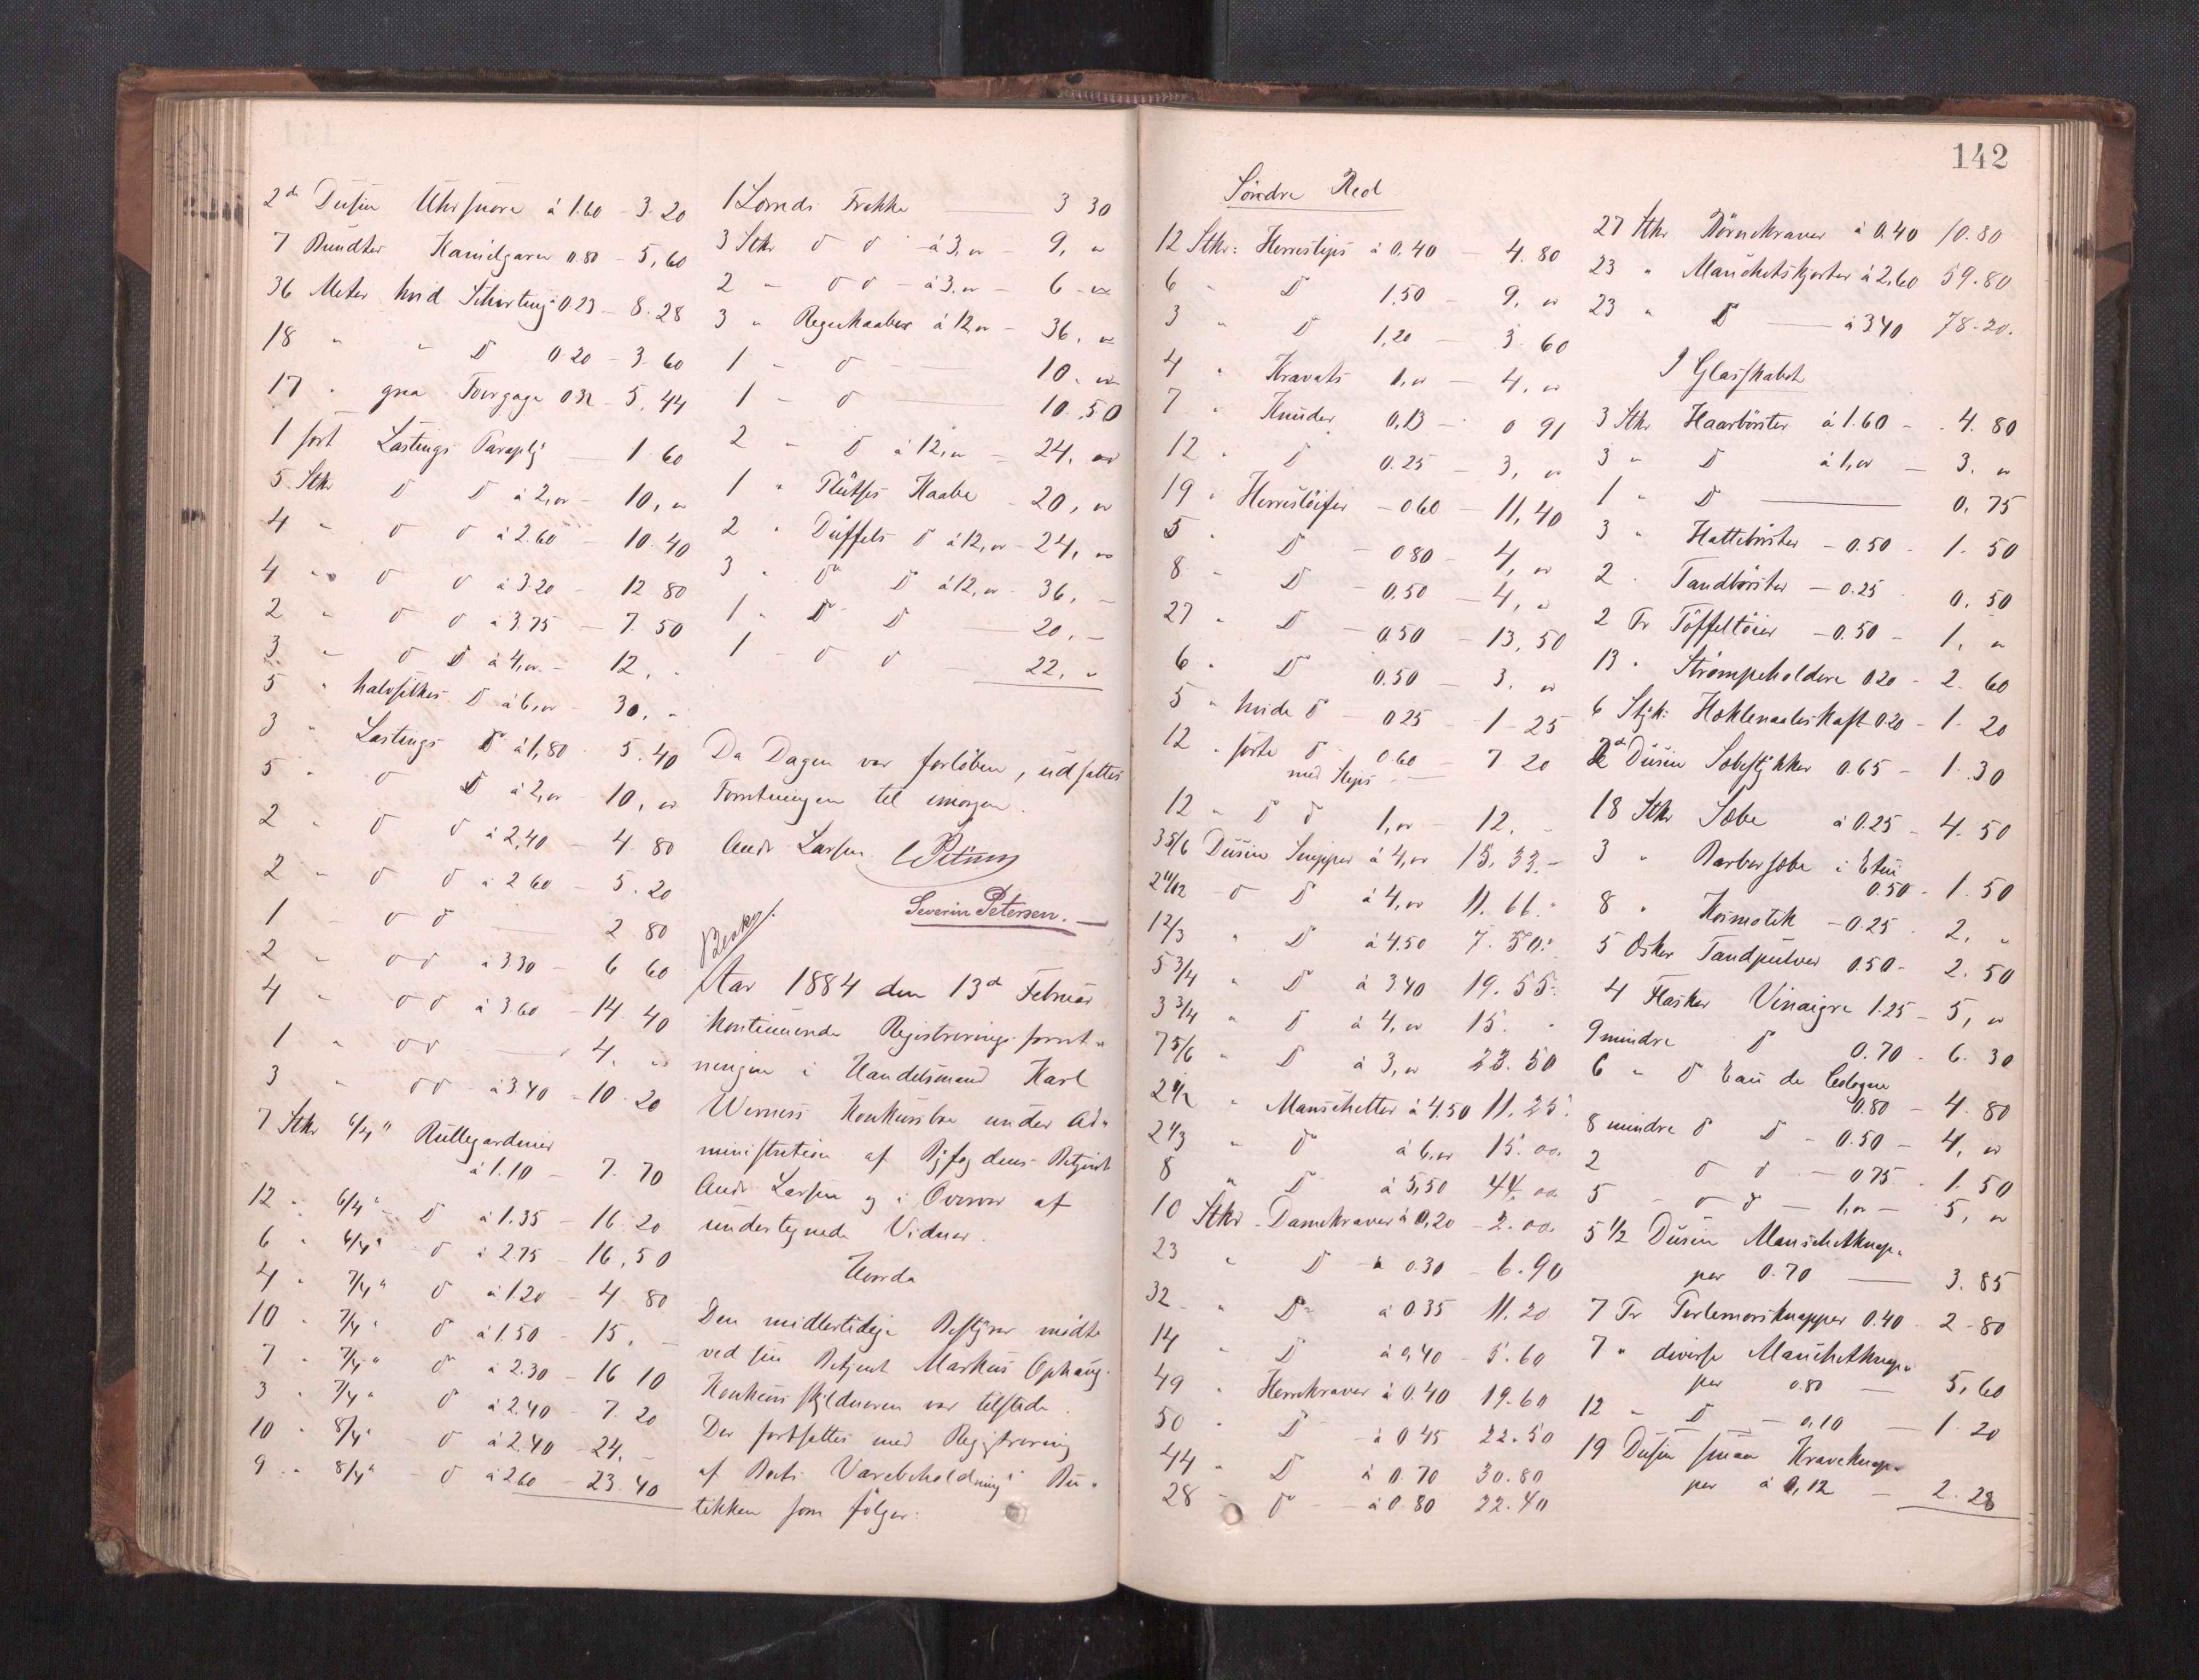 2de Dusin Uhrsnore à 1.60 - 3.20
7 Bundter Kamilgarn 0.80 - 5,60
36 Meter hvid Schirting 0.23 - 8.28
18 " " D 0.20 - 3.60
17 " graa Foergage 0.32 - 5,44
1 sort Lastings Paraply — 1.60
5 Stkr D D à 2,00 - 10, "
4 " D D à 2.60 - 10.40
4 " D D à 3.20 - 12 80
2 " D D à 3.75 - 7.50
3 " D D à 4,00 - 12, "
5 " halvsilkes D à 6,00 - 30, -
3 " Lastings D à 1,80 - 5.40
5 " D D à 2,00 - 10, 00
2 " D D à 2,40 - 4.80
2 " D D à 2 60 - 5.20
1 D D — 2 80
2 " D D à 3 30 - 6 60
4 " D D à 3.60 - 14.40
1 " D D — 4, "
3 " D D à 3.40 - 10.20
7 Stkr 6/4" Rullegardiner
à 1.10 - 7.70
12 " 6/4" D à 1.35 - 16.20
6 " 6/4" D à 2.75 - 16,50
4 " 7/4" D à 1.20 - 4 80
10 " 7/4" D à 1.50 - 15, -
7 " 7/4" D à 2.30 - 16 10
3 " 7/4" D à 2.40 - 7.20
10 " 8/4" D à 2.40 - 24, -
9 " 8/4" - D à 2 60 - 23.40
1 Lærreds Frakke — 3 30
3 Stkr D D - à 3,00 - 9, "
2 " D D - à 3,00 - 6 - 00
3 " Regnkaaber à 12,00 - 36, 00
1 - D — 10, 00
1 - D — 10,50
2 " D à 12,00 - 24, 00
1 " Plüshes Kaabe - 20, 00
2 " Düffels D à 12,00 - 24, 00
3 " D D à 12,00 - 36, -
1 " D D — 20, -
1 - D D — 22, "
Da Dagen var forløben, udsattes
Forretningen til imorgen.
Andr Larsen
Severin Petersen.
Aar 1884 den 13de Februar
kontinuerede Registreringsforret-
ningen i Handelsmand Karl
Werners Konkursbo under Ad-
ministration af Byfogdens Betjent
Andr Larsen og i Overvær af
undertegnede Vidner.
Hvorda
Den midlertidige Bestyrer mødte
ved sin Betjent Markus Ophaug.
Konkursskyldneren var tilstede.
Der fortsattes med Registrering
af Boets Varebeholdning i Bu-
tikken som følger:
142
Søndre Reol
12 Stkr: Herreslips à 0,40 - 4.80
6 " D 1.50 - 9, 00
3 " D 1,20 - 3.60
4 " Kravats 1,00 - 4, 00
7 " Knuder 0,13 - 0 91
12 " D 0.25 - 3, 00
19 " Herresløifer - 0 60 - 11,40
5 " D - 0 80 - 4, 00
8 " D - 0,50 - 4, "
27 " D - 0.50 - 13,50
6 " D 0.50 - 3, 00
5 " hvide D - 0 25 - 1 - 25
12 " sorte D - 0.60 - 7.20
med Slips
12 " D D 1,00 - 12, -
3 5/6 Dusin Snipper à 4,00 15.33.-
2 11/12 - D D à 4,00 11.66.
1 2/3 " D à 4.50 7.50.
5 3/4 " D à 3.40 19.55.
3 3/4 " D à 4,00 15. "
7 5/6 " D à 3,00 23.50
2 1/2 " Manschetter à 4.50 11.25.
2 1/3 " D à 6,00 15.00.
8 " D à 5,50 44.00
10 Stkr - Damekraver à 0,20 - 2.00.
23 " D - à 0.30 - 6.90
32 - " D à 0 35 11.20
14 " D à 0,40 - 5.60
49 " Herrekraver à 0.40 19.60
50 " D - à 0 45 22.50
44 " D à 0.70 30.80
28 - D - à 0.80 22.40
27 Stkr Børnekraver à 0.40 10.80
23 " Manchetskjorter à 2,60 59.80
23 " D — à 3 40 78-20.
I Glasskabet
3 Stkr Haarbørster à 1.60 - 4.80
3 " D à 1,00 - 3. 00
1 " D — 0,75
3 " Hattebørster - 0.50 - 1.50
2 " Tandbørster - 0.25 0.50
2 Pr Tøffeltøier - 0.50 - 1, "
13 " Strømpeholdere 0 20 - 2.60
6 Styk: Heklenaaleskaft 0 20 - 1.20
2de Dusin Sæbestykker 0.65 - 1.30
18 Stkr Sæbe à 0.25 - 4.50
3 " Barbersæbe i Etui
0.50 - 1.50
8 " Kosmotik - 0.25 - 2, "
5 Æsker Tandpulver 0.50 - 2.50
4 Flasker Vinaigre 1.25 - 5, 00
9 mindre D 0.70 - 6.30
6 " D Eau de Cologne
0.80 - 4.80
8 mindre D D - 0.50 - 4, 00
2 D D - 0 75 - 1.50
5 - D D - 1,00 - 5, 00
5 1/2 Dusin Manschetknap-
per 0.70 — 3.85
7 Pr Perlemorsknapper 0.40 - 2-80
7 " diverse Manchetknap-
per 0.80 — 5,60
12 " D - 0,10 — 1.20
19 Dusin smaa Kraveknap-
per à 0,12 — 2.28